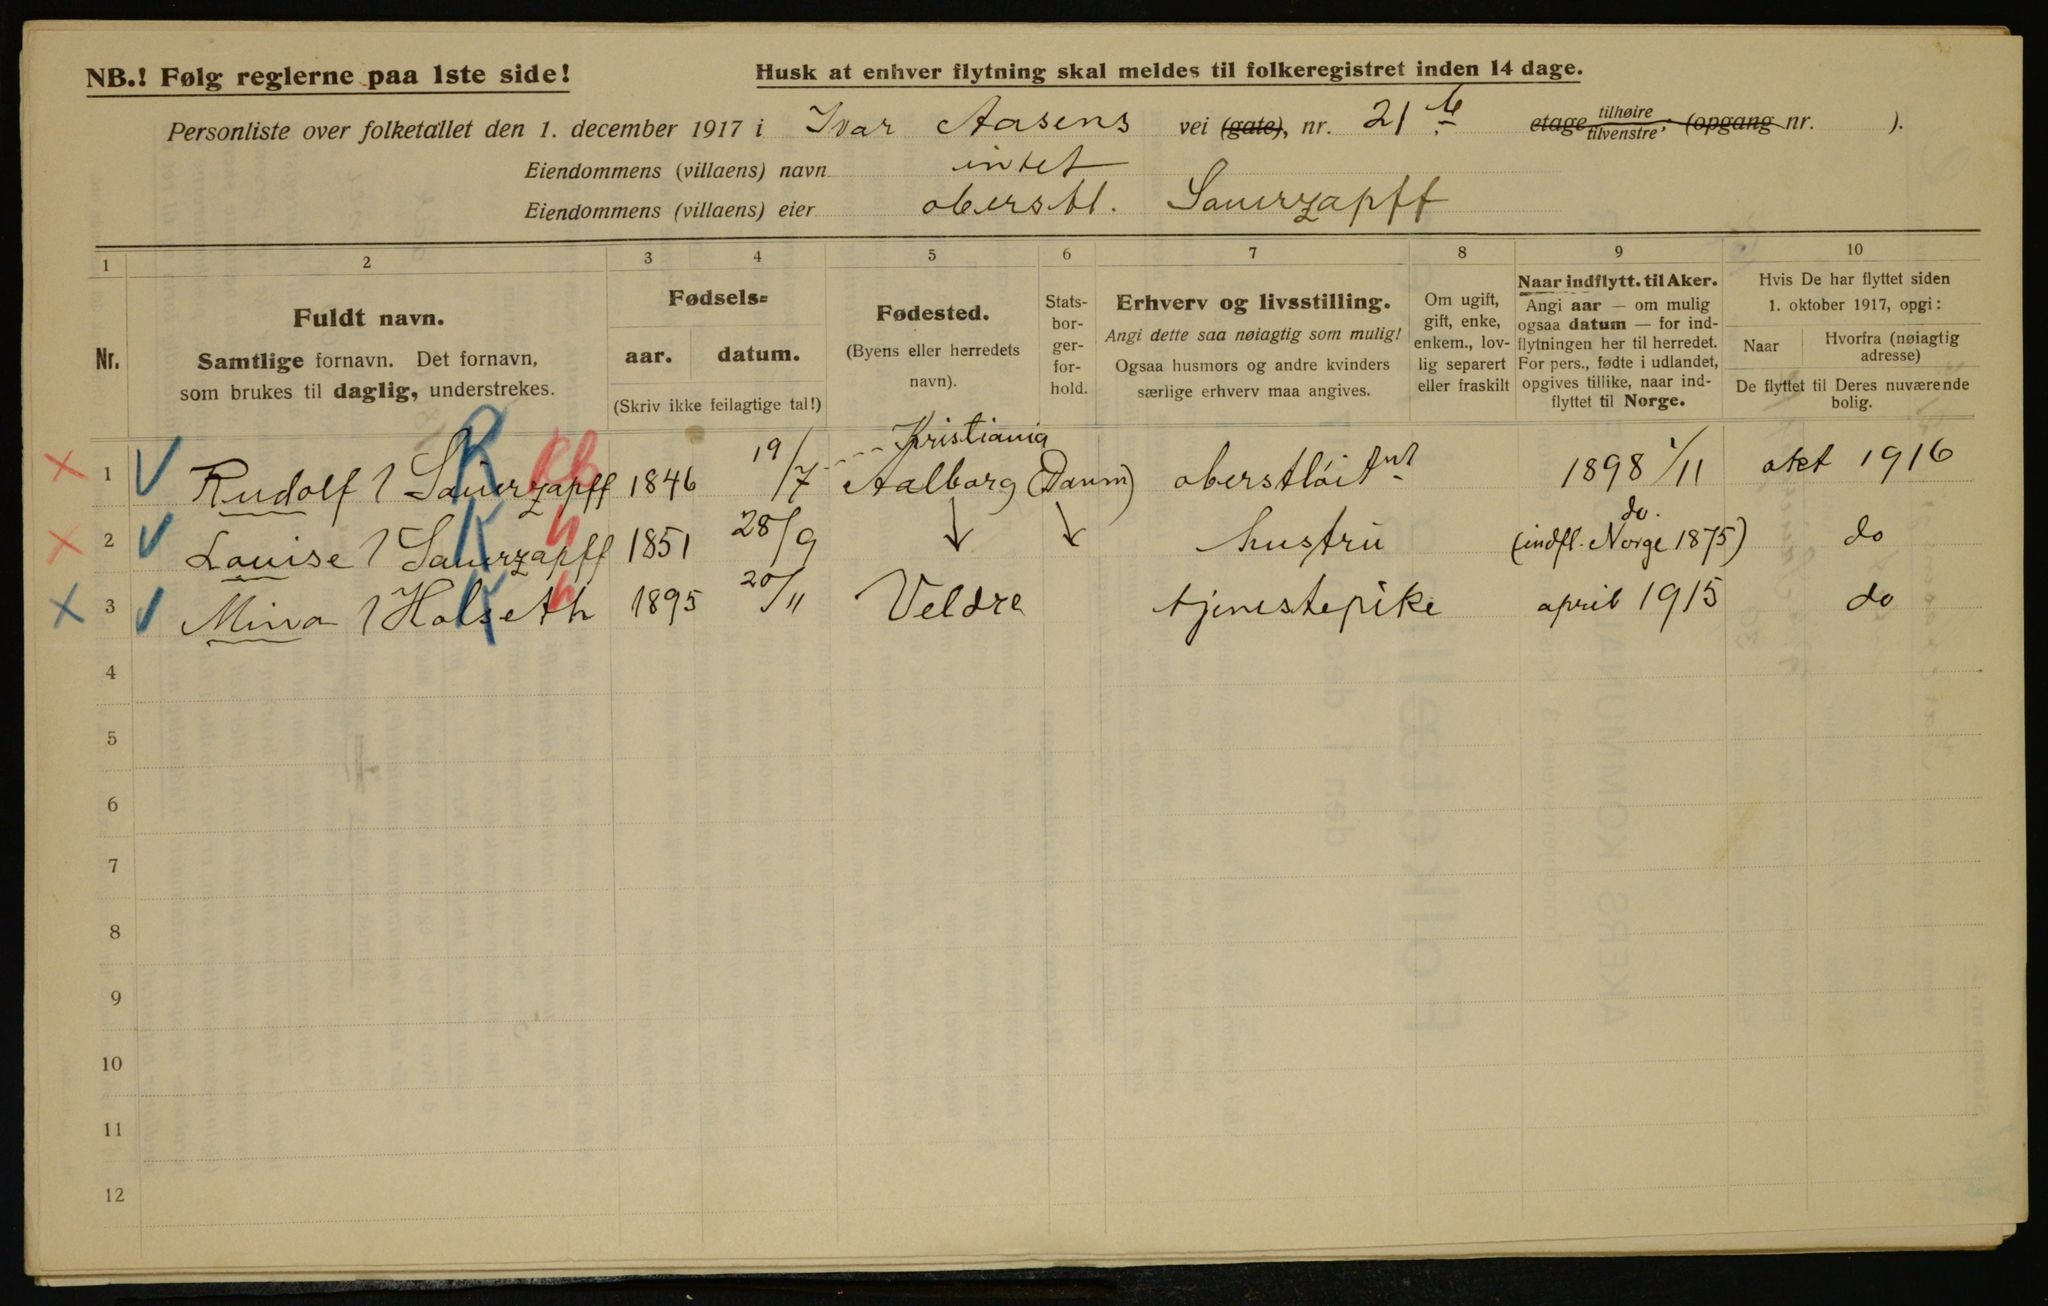 NB.! Følg reglerne paa 1ste side!
Husk at enhver flytning skal meldes til folkeregistret inden 14 dage.
Personliste over folketallet den 1. december 1917 i Ivar Aasens vei (gate), nr. 21 b etage tilhøire tilvenstre, (opgang nr. ).
Eiendommens (villaens) navn intet
Eiendommens (villaens) eier oberstl. Sauerzapff
1 2 3 4 5 6 7 8 9 10
Nr.
Fuldt navn.
Samtlige fornavn. Det fornavn,
som brukes til daglig, understrekes.
Fødsels=
aar. datum.
(Skriv ikke feilagtige tal!)
Fødested.
(Byens eller herredets
navn).
Stats-
bor-
ger-
for-
hold.
Erhverv og livsstilling.
Angi dette saa nøiagtig som mulig!
Ogsaa husmors og andre kvinders
særlige erhverv maa angives.
Om ugift,
gift, enke,
enkem., lov-
lig separert
eller fraskilt
Naar indflytt. til Aker.
Angi aar — om mulig
ogsaa datum — for ind-
flytningen her til herredet.
For pers., fødte i udlandet,
opgives tillike, naar ind-
flyttet til Norge.
Hvis De har flyttet siden
1. oktober 1917, opgi:
Naar
Hvorfra (nøiagtig
adresse)
De flyttet til Deres nuværende
bolig.
Kristiania
1 Rudolf Sauerzapff 1846 19/7 Aalborg (Danm) oberstløitnt 1898 1/11 okt 1916
do.
2 Louise Sauerzapff 1851 28/9 hustru (indfl. Norge 1875) do
3 Mina Holseth 1895 20/11 Veldre tjenestepike april 1915 do
4
5
6
7
8
9
10
11
12